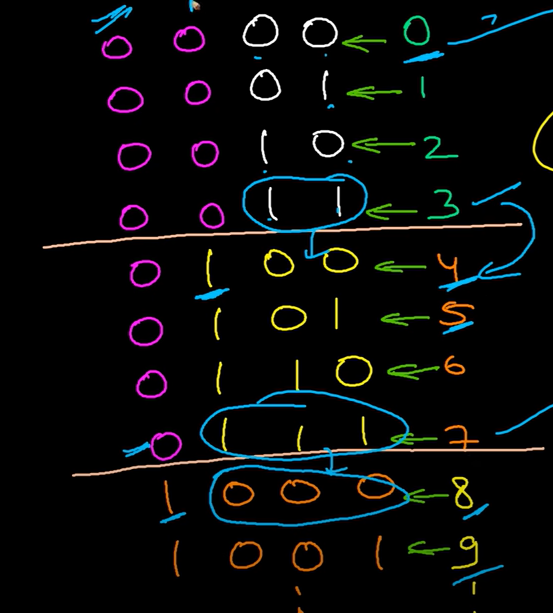 0 0 0 0 ← 0
0 0 0 1 ← 1
0 0 1 0 ← 2
0 0 1 1 ← 3
0 1 0 0 ← 4
0 1 0 1 ← 5
0 1 1 0 ← 6
0 1 1 1 ← 7
1 0 0 0 ← 8
1 0 0 1 ← 9